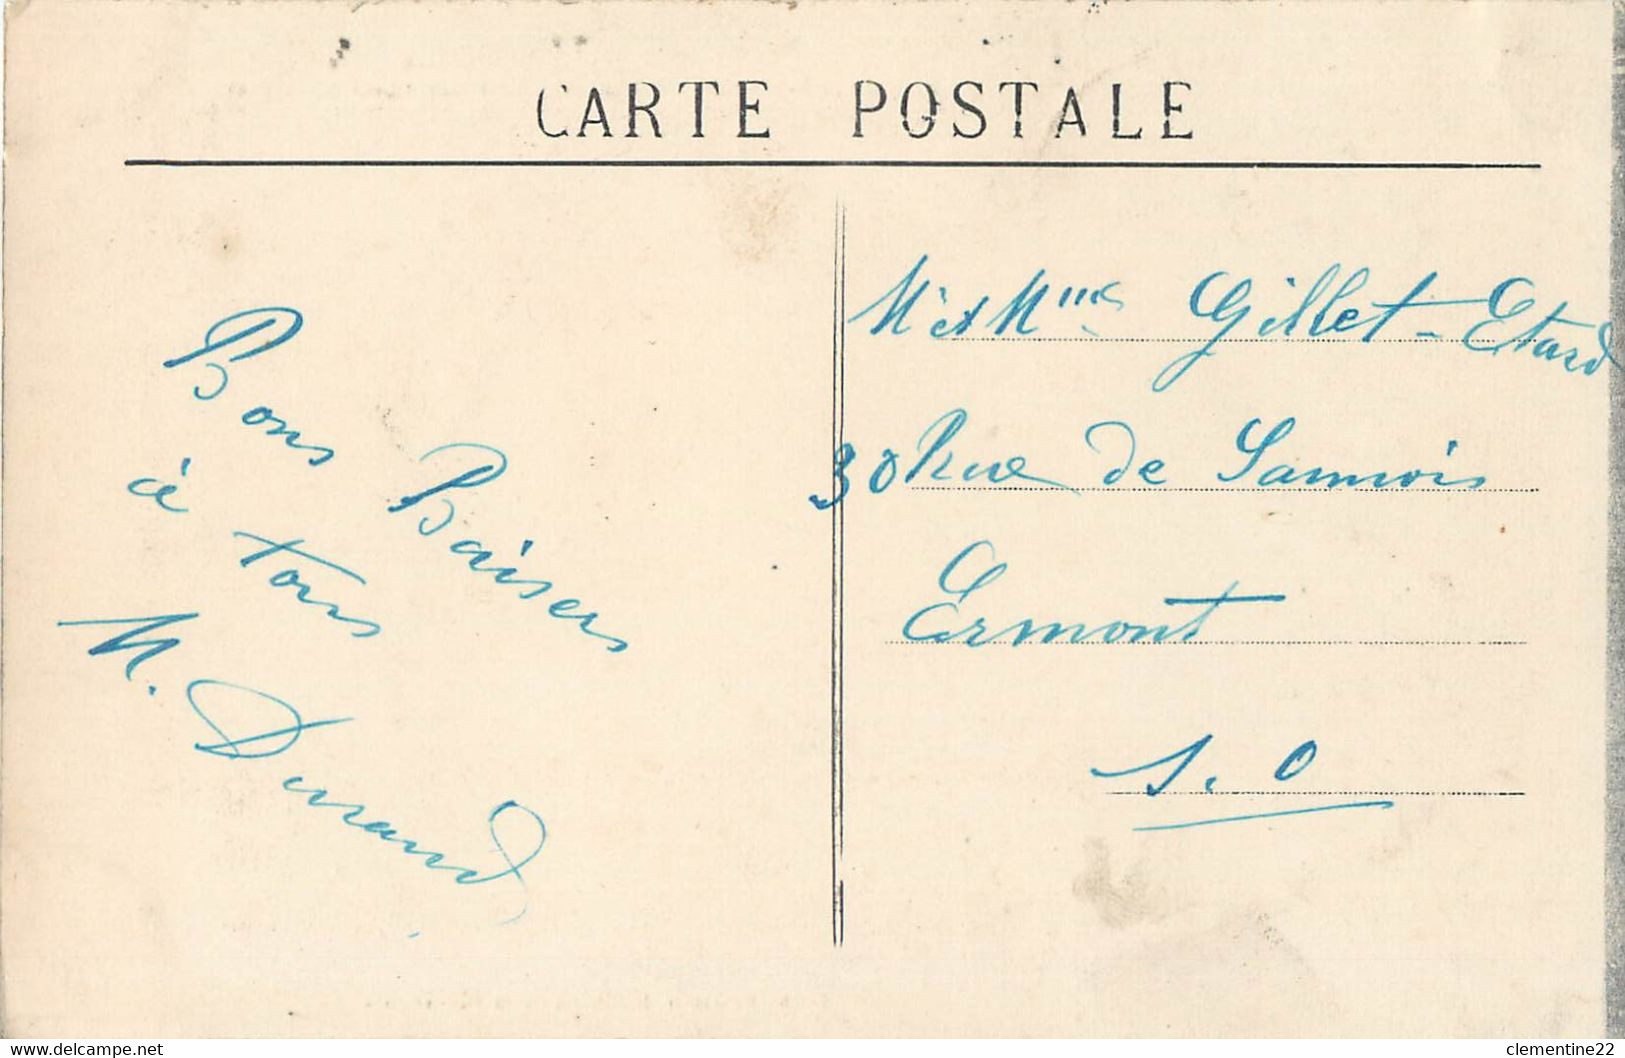 CARTE POSTALE
Bons Baisers
à tous
M. Durand
Mr et Mme Gillet-Etard
30 Rue de Sannois
Ermont
S. O
clementine22